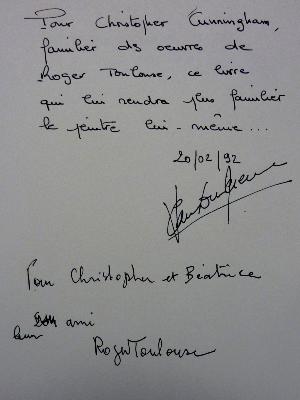 Pour Christopher Cunningham,
familier des oeuvres de
Roger Toulouse, ce livre
qui lui rendra plus familier
le peintre lui-même...
20/02/92
Pour Christopher et Béatrice
leur ami
Roger Toulouse